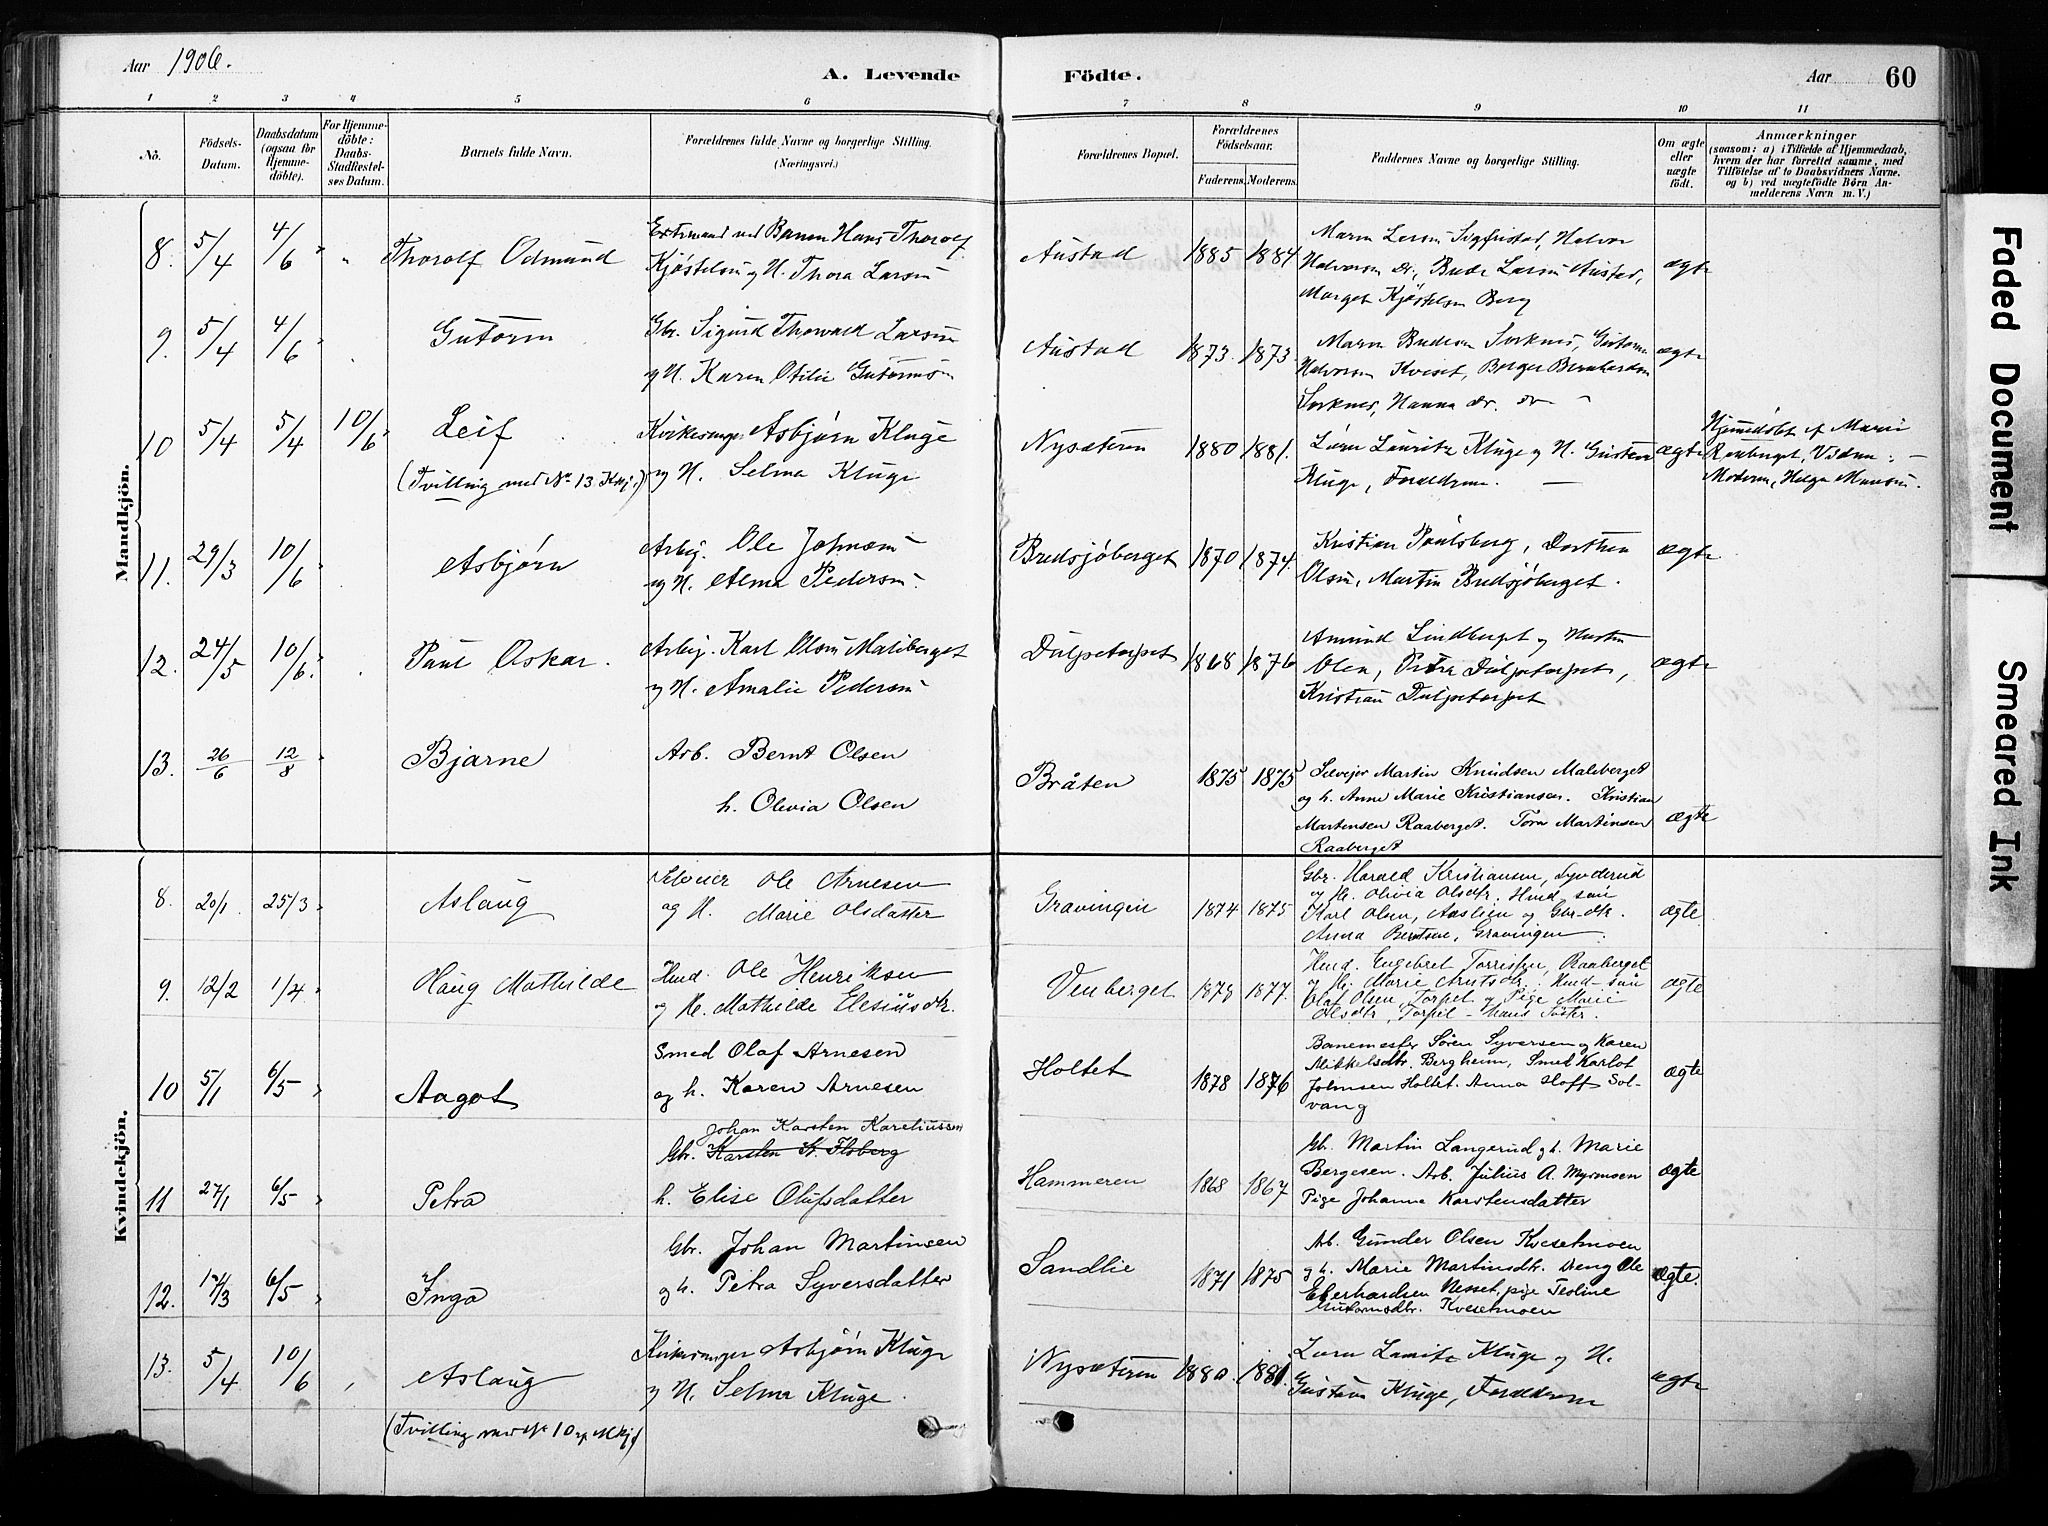 Aar 1906.
A. Levende
Födte.
Aar
60
1 2 3 4 5 6 7 8 9 10 11
No.
Födsels-Datum.
Daabsdatum (ogsaa for Hjemme-döbte).
For Hjemme-döbte: Daabs-Stadfæstel-ses Datum.
Barnets fulde Navn.
Forældrenes fulde Navne og borgerlige Stilling.
(Næringsvei.)
Forældrenes Bopæl.
Forældrenes Födselsaar.
Faderens. Moderens.
Faddernes Navne og borgerlige Stilling.
Om ægte eller uægte födt.
Anmærkninger
(saasom: a) i Tilfælde af Hjemmedaab,
hvem der har forrettet samme, med
Tilföielse af to Daabsvidners Navne.
og b) ved uægtefödte Börn An-
melderens Navn m. V.)
Mandkjön.
8. 5/4 4/6 " " Thorolf Odmund
Banen Hans Thorolf
Kjöstelsen og H. Thora Larsen
Austad 1885 1884
Maren Larsen Sigfristad, Halvor
Halvorsen do., Larsen Austad,
Marget Kjöstelsen Berg
ægte
9. 5/4 4/6 " Gutorm
Gbr. Sigurd Thorvald Larsen
og H. Karen Otilie Gutormsen
Austad 1873. 1873.
Maren Budersen Sorknes, Gutorm
Halvorsen Kveset, Borger Bernhardsen
Sorknes, Hanna do. do
ægte
10 5/4 5/4 10/6 Leif
(Tvilling med No 13 Kkj.)
Kirkesanger Asbjørn Kluge
og H. Selma Kluge
Nysæteren 1880 1881.
Lauritz Kluge og H. Gustava
Kluge, Forældrene. —
ægte
Hjemmedöbt af Maren
Raaberget, Vidner: —
Moderen, Helga Monsen.
11. 29/3 10/6 Asbjørn
Arbg. Ole Johnsen
og H. Alma Pedersen.
Bredsjöberget 1870 1874.
Kristian Paulsberg, Dorthea
Olsen, Martin Bredsjöberget.
ægte
12. 24/5 10/6. Paul Oskar.
Arbg. Karl Olsen Malsberget
og H. Amalie Pedersen
Dulpetorpet 1868 1876
Amund Lindberget og Hustru
Olea, Petra Dulpetorpet,
Kristian Dulpetorpet
ægte
13. 26/6 12/8 " Bjarne
Arb. Bernt Olsen
h. Olivia Olsen
Bråten 1875 1875
Selvejer Martin Knudsen Malsberget
og h. Anne Marie Kristiansen. Kristian
Martensen Raaberget. Tora Martinsen
Raaberget
ægte
Kvindekjön.
8. 20/1. 25/3 " Aslaug
Selveier Ole Arnesen
og H. Marie Olsdatter
Gravingen 1874 1875
Gbr. Harald Kristiansen, Synderud
og H. Olivia Olsdtr. Husd. sön
Karl Olsen, Aaslien og Gbr-dtr.
Anna Berntsen, Gravingen.
ægte
9. 12/2 1/4 " Haug Mathilde
Husd. Ole Henriksen
og H. Mathilde Elesiusdtr.
Venberget 1878 1877.
Husd. Engebret Torrissen, Raaberget
og H. Marie Arntsdtr. Husd sön
Olaf Olsen, Torpet og Pige Marie
Olsdtr, Torpet - hans Söster.
ægte
10 5/1 6/5 " Aagot
Smed Olaf Arnesen
og h. Karen Arnesen
Holtet 1878 1876
Banemester Sören Syversen og Karen
Mikkelsdtr. Bergheim, Smed Karlot
Johnsen Holtet. Anna Hoff Sol-
vang
ægte
11 27/1 6/5 " Petra
Johan Karsten Kareliussen
Gbr. Karsten K. Flisberg
h. Elise Olufsdatter
Hammeren 1868 1867
Gb. Martin Langerud og h. Marie
Bergesen. Arb. Julius A. Myrmoen
Pige Johanne Karstensdatter
ægte
12. 12/3 6/5 " Inga
Gbr. Johan Martinsen
og h. Petra Syversdatter
Sandlie 1871 1875
Arb. Gunder Olsen Kvesetmoen
og h. Marie Martinsdtr. Dreng Ole
Eberhardsen Nesset, pige Teoline
Gutormsdtr. Kvesetmoen
ægte.
13. 5/4 10/6 Aslaug
(Tvilling med No 10 af Mkj)
Kirkesanger Asbjørn Kluge
og H. Selma Kluge.
Nysæteren 1880. 1881.
Lauritz Kluge og H.
Gustava Kluge, Forældrene
ægte
Faded Document
Smeared Ink